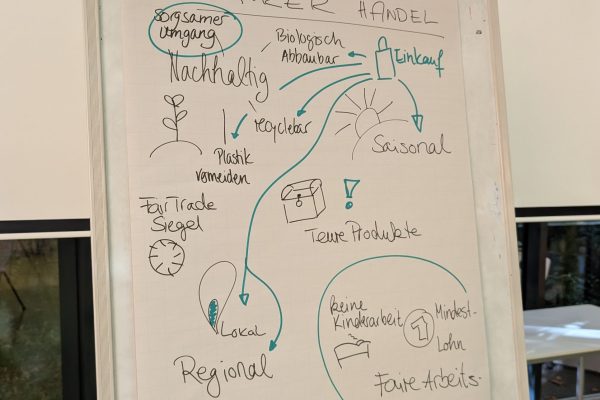 HANDEL
Sorgsamer
Umgang
Biologisch
Abbaubar
Einkauf
Nachhaltig
recyclebar
Saisonal
Plastik
vermeiden
FairTrade
Siegel
Teure Produkte
Lokal
Regional
Keine
Kinderarbeit
Mindest-
Lohn
Faire Arbeits-